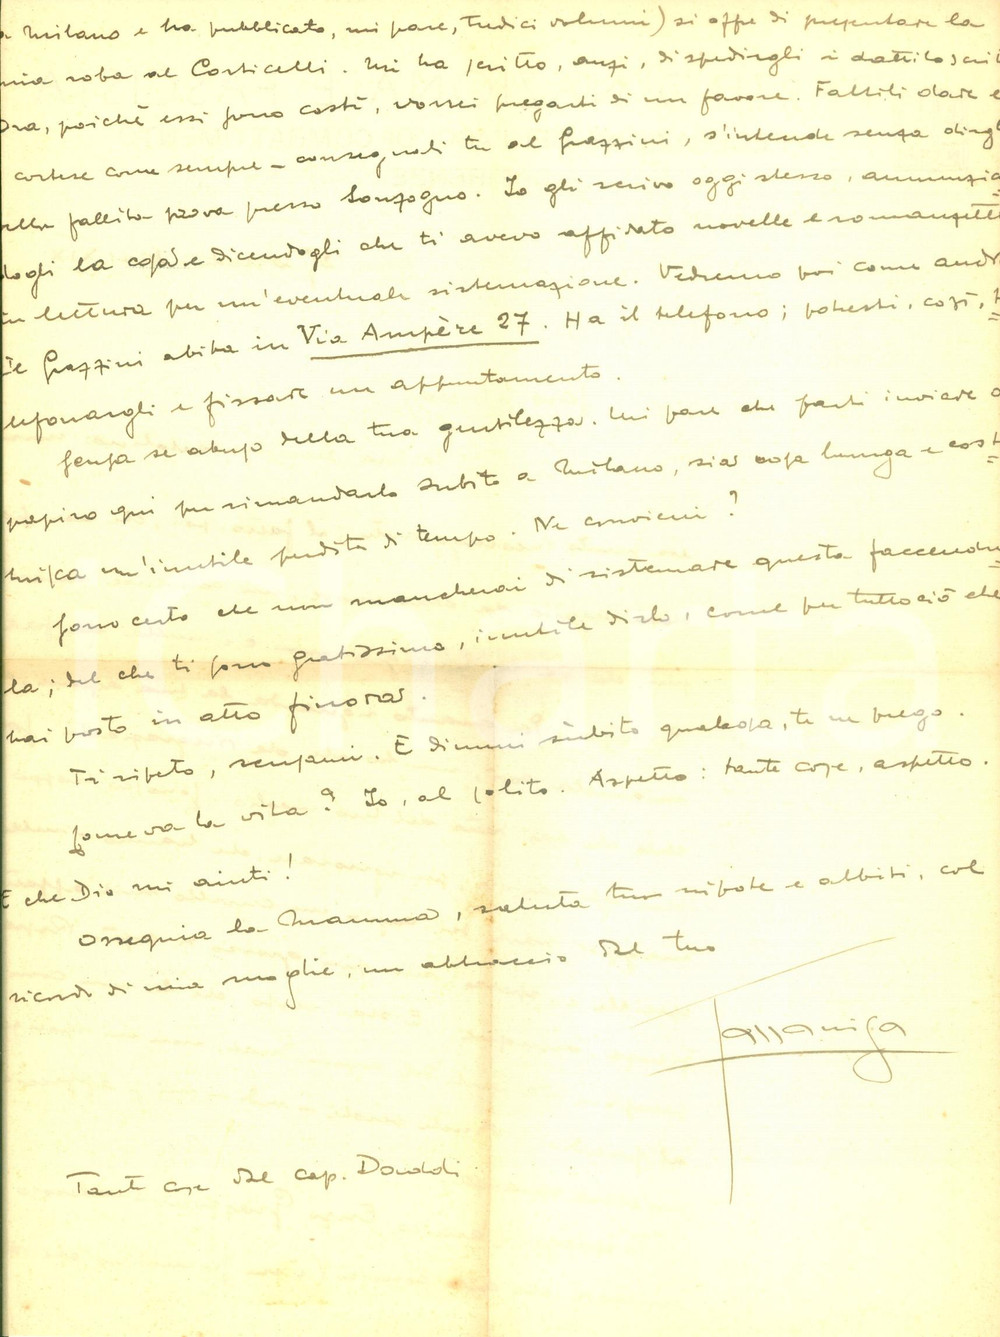 a Milano e ha pubblicato, mi pare, tredici volumi) si offre di presentare la
mia roba al Corticelli. Mi ha scritto, anzi, di spedirgli i dattiloscrit
Ora, poiché essi sono costì, vorrei pregarti di un favore. Fattili dare e
cortese come sempre - consegnali tu al Grazzini, s'intende senza dirgli
della fallita prova presso Sonzogno. Io gli scrivo oggi stesso, annunzian
dogli la cosa e dicendogli che ti avevo affidato novelle e romanzetti
in lettura per un'eventuale sistemazione. Vedremo poi come andrà
Il Grazzini abita in Via Ampère 27. Ha il telefono; potresti, così, te
lefonargli e fissare un appuntamento.
Scusa se abuso della tua gentilezza. Mi pare che farti inviare a
papiro qui per rimandarlo subito a Milano, sia cosa lunga e cost
tuisca un'inutile perdita di tempo. Ne convieni?
Sono certo che non mancherai di sistemare questa faccendu
la; del che ti sono gratissimo, inutile dirlo, come per tutto ciò che
hai posto in atto finora.
Ti ripeto, scusami. E dimmi subito qualcosa, te ne prego.
Come va la vita? Io, al solito. Aspetto: tante cose, aspetto.
E che Dio mi aiuti!
Ossequia la Mamma, saluta tuo nipote e abbiti, col
ricordo di mia moglie, un abbraccio dal tuo
Tassaniga
Tante cose dal cap. Donddi